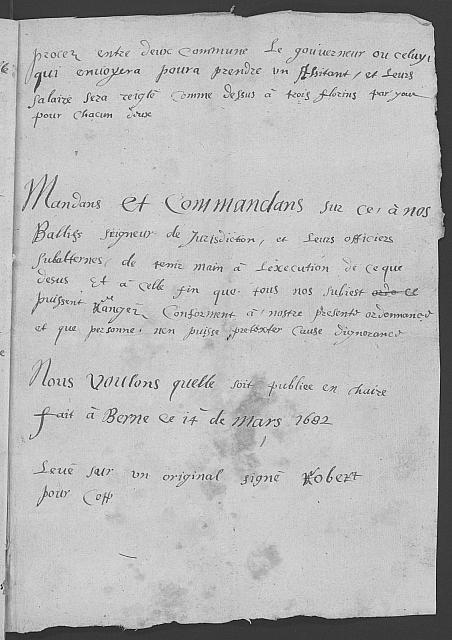 procez entre deux Commune Le gouverneur ou celuy
qui envoyera poura prendre un Assitant, et Leurs
salaire sera reiglé Comme dessus à trois florins par jour
pour chacun deux
Mandans et Commandans sur ce, à nos
Ballifs seigneur de Jurisdicton, et Leurs officiers
subalternes, de tenir main à Lexecution de ce que
desus Et à celle fin que tous nos subiest
puissent Ranger Conforment à nostre presente ordonnance
et que personne, nen puisse pretexter Cause dignorance
Nous Voulons quelle soit publiee en chaire
fait à Berne ce 14 de Mars 1682
Levé sur un original signé Robert
pour Copp